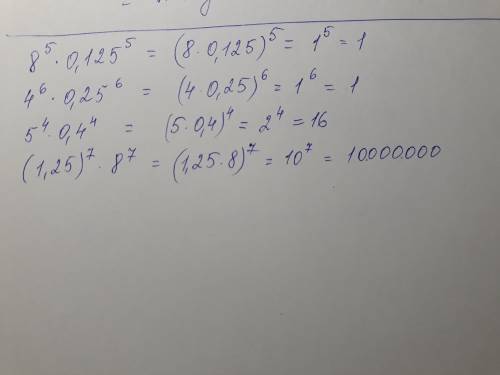 8⁵ · 0,125⁵ = (8 · 0,125)⁵ = 1⁵ = 1
4⁶ · 0,25⁶ = (4 · 0,25)⁶ = 1⁶ = 1
5⁴ · 0,4⁴ = (5 · 0,4)⁴ = 2⁴ = 16
(1,25)⁷ · 8⁷ = (1,25 · 8)⁷ = 10⁷ = 10.000.000